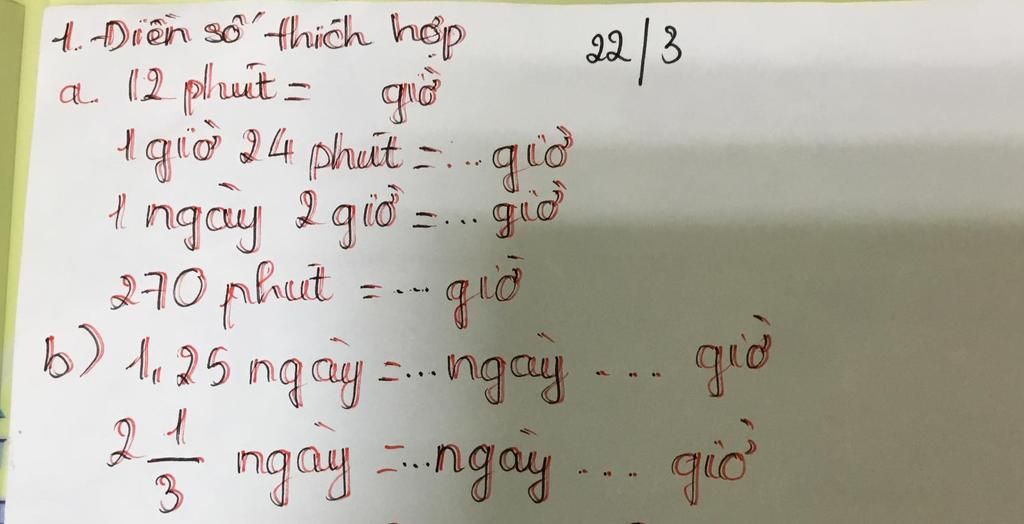 1. Điền số thích hợp
22/3
a. 12 phút = giờ
1 giờ 24 phút = ... giờ
1 ngày 2 giờ = ... giờ
270 phút = ... giờ
b) 1,25 ngày = ... ngày .... giờ
2 1/3 ngày = ... ngày .... giờ